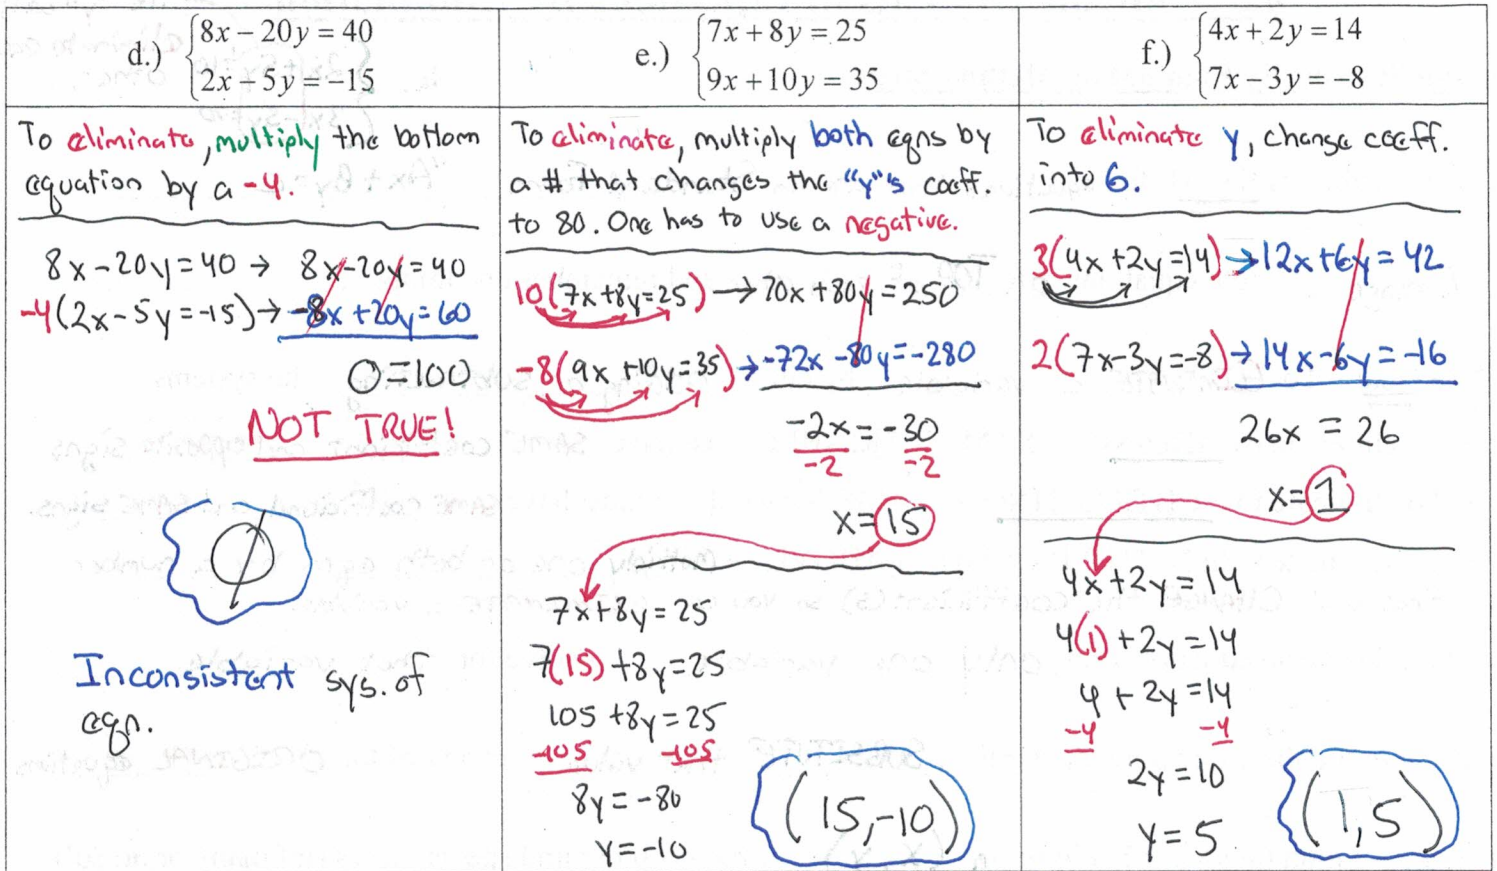 d.) {8x − 20y = 40
2x − 5y = −15
To eliminate, multiply the bottom
equation by a -4.
8x-20y=40 → 8x-20y=40
-4(2x-5y=-15) → -8x+20y=60
0=100
NOT TRUE!
Ø
Inconsistent sys. of
eqn.
e.) {7x + 8y = 25
9x + 10y = 35
To eliminate, multiply both eqns by
a # that changes the "y"'s coeff.
to 80. One has to use a negative.
10(7x+8y=25) → 70x+80y=250
-8(9x+10y=35) → -72x-80y=-280
-2x=-30
-2 -2
x=15
7x+8y=25
7(15)+8y=25
105+8y=25
-105 -105
8y=-80
y=-10
(15,-10)
f.) {4x + 2y = 14
7x − 3y = −8
To eliminate y, change coeff.
into 6.
3(4x+2y=14) → 12x+6y=42
2(7x-3y=-8) → 14x-6y=-16
26x = 26
x=1
4x+2y=14
4(1)+2y=14
4+2y=14
-4 -4
2y=10
y=5
(1,5)